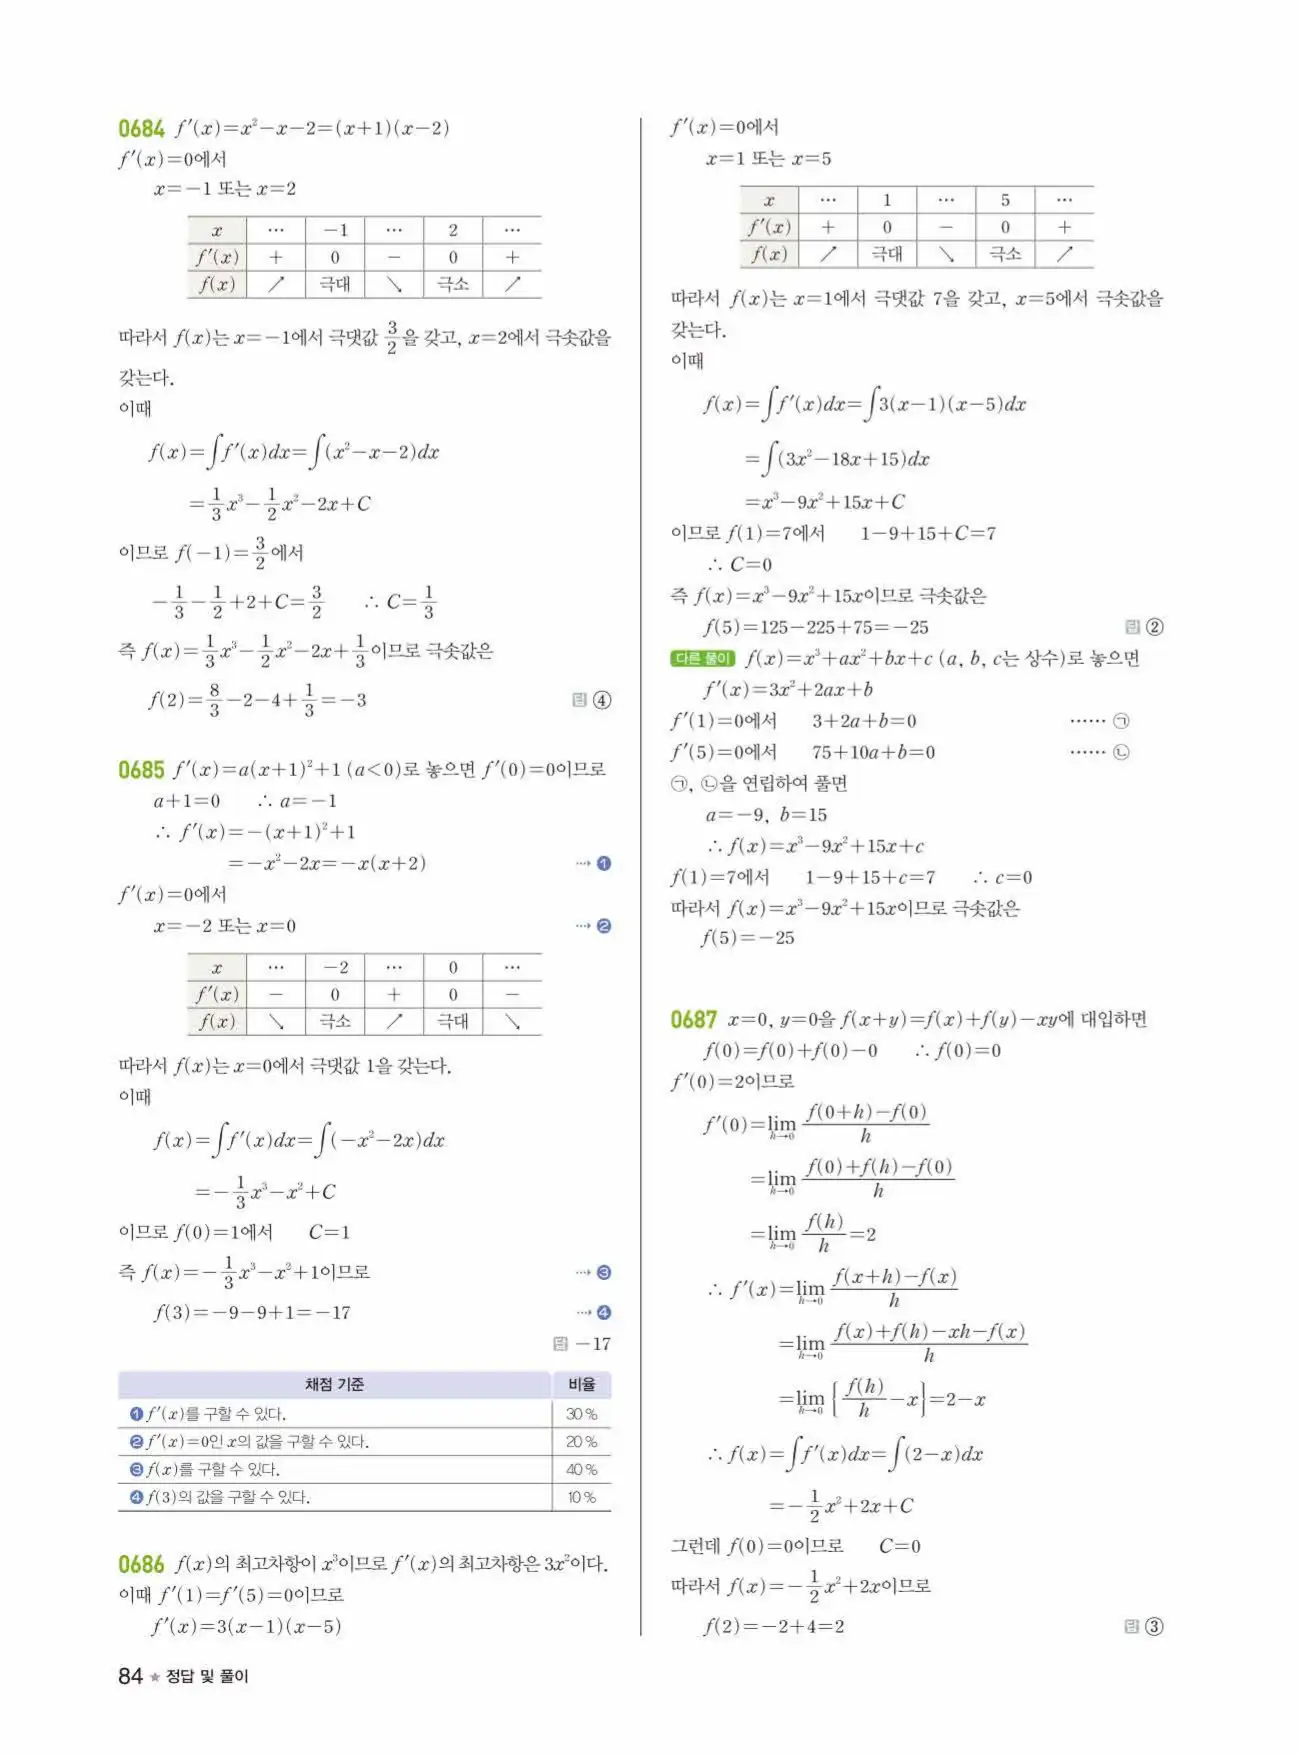 0684 f′(x)=x²−x−2=(x+1)(x−2)
f′(x)=0에서
x=−1 또는 x=2
x ⋯ −1 ⋯ 2 ⋯
f′(x) + 0 − 0 +
f(x) ↗ 극대 ↘ 극소 ↗
따라서 f(x)는 x=−1에서 극댓값 3/2을 갖고, x=2에서 극솟값을
갖는다.
이때
f(x)=∫f′(x)dx=∫(x²−x−2)dx
=1/3x³−1/2x²−2x+C
이므로 f(−1)=3/2에서
−1/3−1/2+2+C=3/2 ∴ C=1/3
즉 f(x)=1/3x³−1/2x²−2x+1/3이므로 극솟값은
f(2)=8/3−2−4+1/3=−3 답 ④
0685 f′(x)=a(x+1)²+1 (a<0)로 놓으면 f′(0)=0이므로
a+1=0 ∴ a=−1
∴ f′(x)=−(x+1)²+1
=−x²−2x=−x(x+2) ⋯→ ❶
f′(x)=0에서
x=−2 또는 x=0 ⋯→ ❷
x ⋯ −2 ⋯ 0 ⋯
f′(x) − 0 + 0 −
f(x) ↘ 극소 ↗ 극대 ↘
따라서 f(x)는 x=0에서 극댓값 1을 갖는다.
이때
f(x)=∫f′(x)dx=∫(−x²−2x)dx
=−1/3x³−x²+C
이므로 f(0)=1에서 C=1
즉 f(x)=−1/3x³−x²+1이므로 ⋯→ ❸
f(3)=−9−9+1=−17 ⋯→ ❹
답 −17
채점 기준 비율
❶ f′(x)를 구할 수 있다. 30 %
❷ f′(x)=0인 x의 값을 구할 수 있다. 20 %
❸ f(x)를 구할 수 있다. 40 %
❹ f(3)의 값을 구할 수 있다. 10 %
0686 f(x)의 최고차항이 x³이므로 f′(x)의 최고차항은 3x²이다.
이때 f′(1)=f′(5)=0이므로
f′(x)=3(x−1)(x−5)
f′(x)=0에서
x=1 또는 x=5
x ⋯ 1 ⋯ 5 ⋯
f′(x) + 0 − 0 +
f(x) ↗ 극대 ↘ 극소 ↗
따라서 f(x)는 x=1에서 극댓값 7을 갖고, x=5에서 극솟값을
갖는다.
이때
f(x)=∫f′(x)dx=∫3(x−1)(x−5)dx
=∫(3x²−18x+15)dx
=x³−9x²+15x+C
이므로 f(1)=7에서 1−9+15+C=7
∴ C=0
즉 f(x)=x³−9x²+15x이므로 극솟값은
f(5)=125−225+75=−25 답 ②
다른 풀이 f(x)=x³+ax²+bx+c (a, b, c는 상수)로 놓으면
f′(x)=3x²+2ax+b
f′(1)=0에서 3+2a+b=0 ⋯⋯ ㉠
f′(5)=0에서 75+10a+b=0 ⋯⋯ ㉡
㉠, ㉡을 연립하여 풀면
a=−9, b=15
∴ f(x)=x³−9x²+15x+c
f(1)=7에서 1−9+15+c=7 ∴ c=0
따라서 f(x)=x³−9x²+15x이므로 극솟값은
f(5)=−25
0687 x=0, y=0을 f(x+y)=f(x)+f(y)−xy에 대입하면
f(0)=f(0)+f(0)−0 ∴ f(0)=0
f′(0)=2이므로
f′(0)=lim h→0 {f(0+h)−f(0)}/h
=lim h→0 {f(0)+f(h)−f(0)}/h
=lim h→0 f(h)/h=2
∴ f′(x)=lim h→0 {f(x+h)−f(x)}/h
=lim h→0 {f(x)+f(h)−xh−f(x)}/h
=lim h→0 {f(h)/h−x}=2−x
∴ f(x)=∫f′(x)dx=∫(2−x)dx
=−1/2x²+2x+C
그런데 f(0)=0이므로 C=0
따라서 f(x)=−1/2x²+2x이므로
f(2)=−2+4=2 답 ③
84 ★ 정답 및 풀이